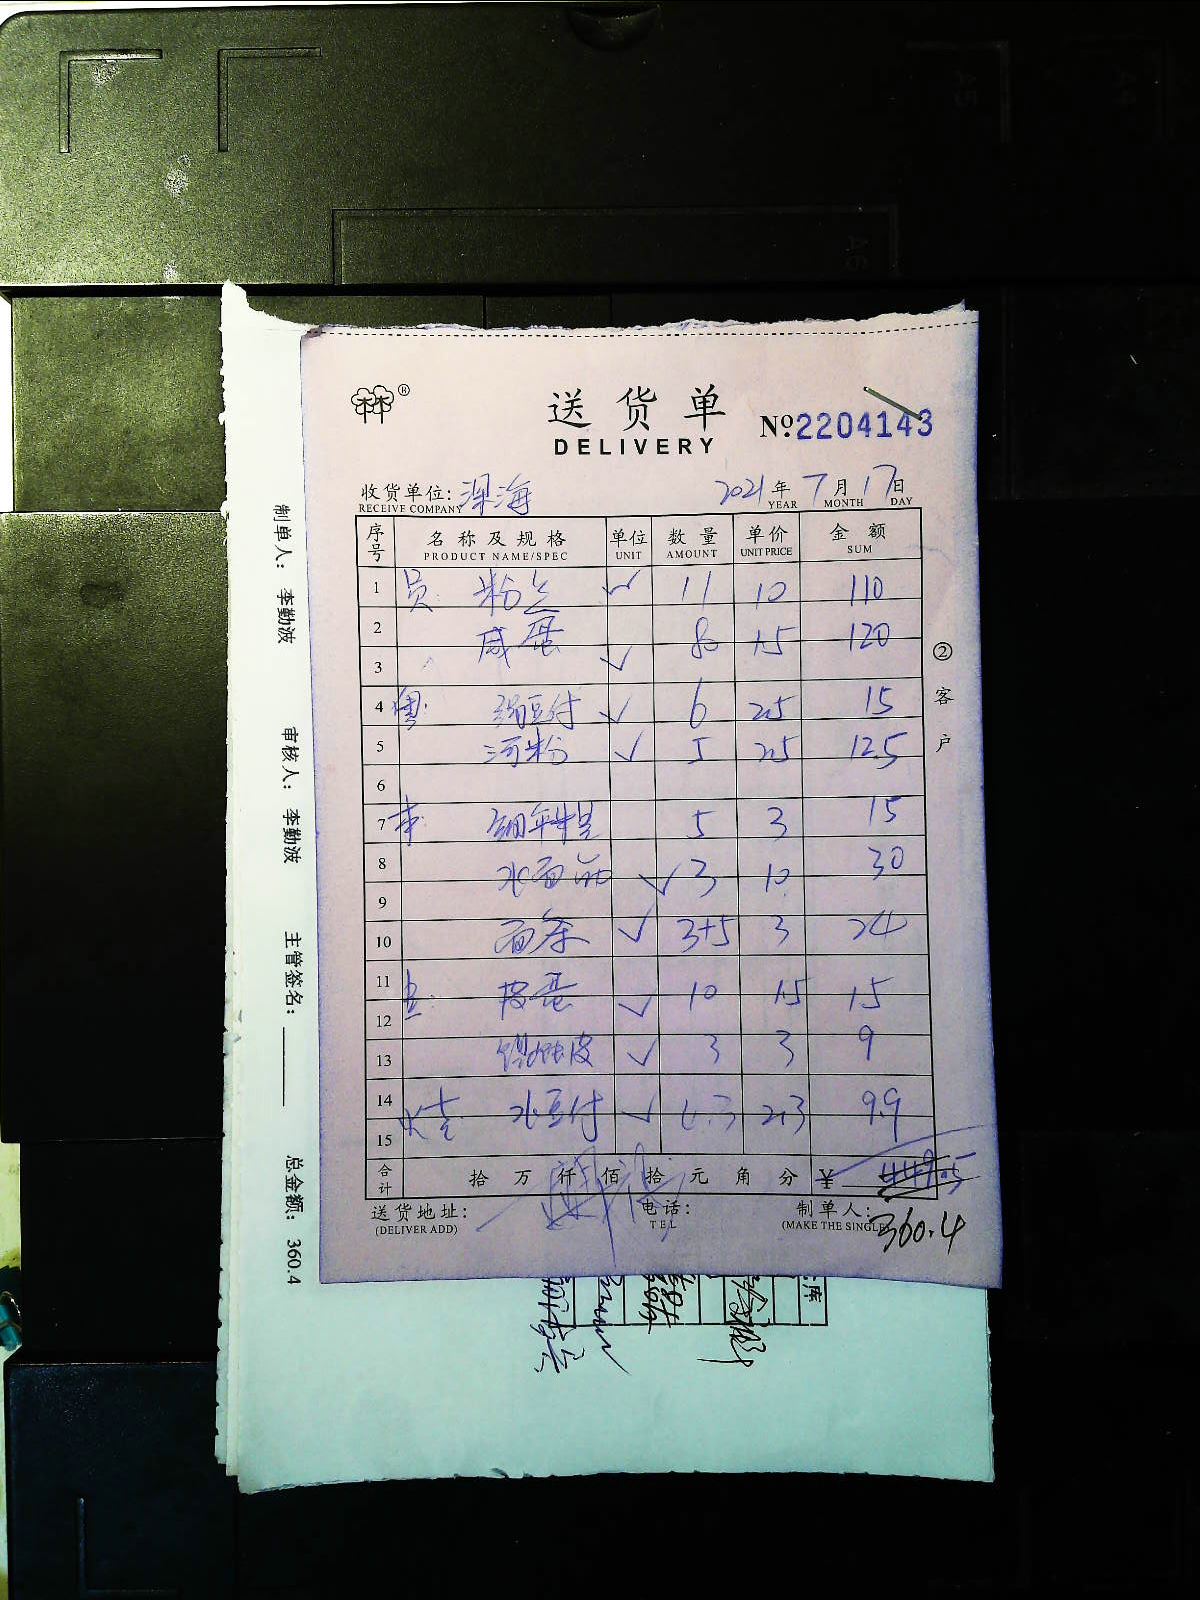 ®
送货单
DELIVERY
№2204143
收货单位: 深海 2021年 7月 17日
RECEIVE COMPANY YEAR MONTH DAY
序号 名称及规格 单位 数量 单价 金额
PRODUCT NAME/SPEC UNIT AMOUNT UNIT PRICE SUM
1 员 粉 11 10 110
2 咸蛋 80 1.5 120
3
4 豆付 6 2.5 15
5 河粉 5 2.5 12.5
6
7 5 3 15
8 水面 3 10 30
9
10 面条 3+5 3 24
11 皮蛋 10 1.5 15
12
13 皮 3 3 9
14 水豆付 4.3 2.3 9.9
15
合计 拾 万 仟 佰 拾 元 角 分 ¥
送货地址: 电话: 制单人:
(DELIVER ADD) TEL (MAKE THE SINGLE)
360.4
②客户
制单人: 李勤波 审核人: 李勤波 主管签名: 总金额: 360.4
库